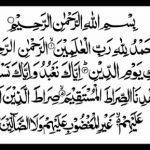 بِسْمِ اللهِ الرَّحْمٰنِ الرَّحِيْمِ
حَمْدُ لِلهِ رَبِّ الْعٰلَمِيْنَ الرَّحْمٰنِ الرَّحِيْمِ
يَوْمِ الدِّيْنِ اِيَّاكَ نَعْبُدُ وَاِيَّاكَ نَسْ
دِنَا الصِّرَاطَ الْمُسْتَقِيْمَ صِرَاطَ الَّذِيْنَ
عَلَيْهِمْ غَيْرِ الْمَغْضُوْبِ عَلَيْهِمْ وَلَا الضَّالِّيْنَ